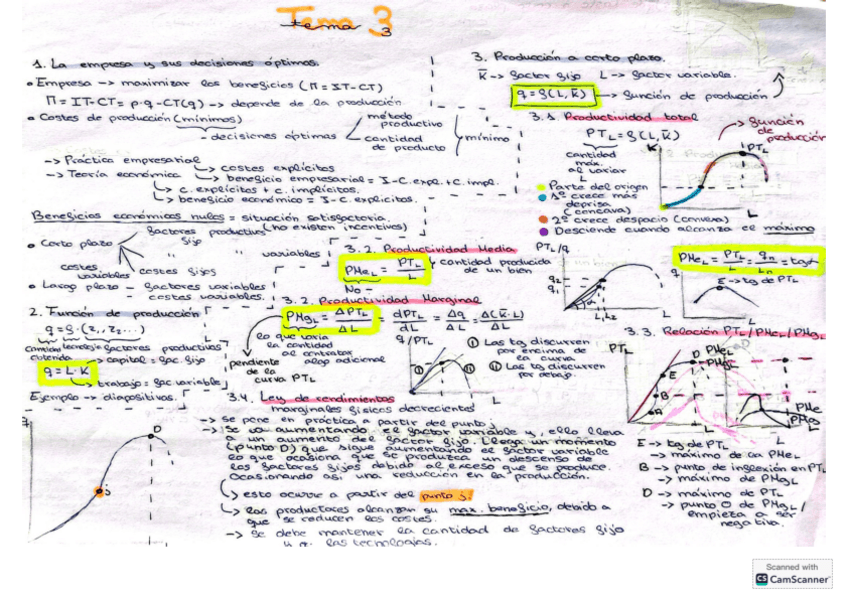 Tema 3
tema 3
1. La empresa y sus decisiones óptimas.
• Empresa → maximizar los beneficios (Π = IT-CT)
Π = IT-CT = p·q-CT(q) → depende de la producción
• Costes de producción (mínimos)
- decisiones óptimas
método productivo
cantidad de producto
mínimo
→ Práctica empresarial
→ Teoría económica
→ costes explícitos
→ beneficio empresarial = I-C.expl.+c.impl.
↳ c. explícitos + c. implícitos.
↳ beneficio económico = I-C. explícitos.
Beneficios económicos nulos = situación satisfactoria.
(no existen incentivos)
• Corto plazo
factores productivos
fijo
" " variables
costes variables
costes fijos
• Largo plazo - factores variables
- costes variables.
2. Función de producción
q = f·(z₁, z₂...)
cantidad obtenida
tecnología
factores productivos
q = L·K
→ capital = fac. fijo
↳ trabajo = fac variable
Ejemplo → diapositivas.
D
J
3. Producción a corto plazo.
K̅ → factor fijo L → factor variable.
q = f(L, K̅) → función de producción
3.1 Productividad total
PT_L = f(L, K̅)
cantidad máx. al variar L
→ función de producción
K
PT_L
L
Parte del origen
1º crece más deprisa (concava)
2º crece despacio (convexa)
Desciende cuando alcanza el máximo
3.2. Productividad Media
PMe_L = PT_L / L
cantidad producida de un bien
No -
PT_L/q
q₂
q₁
L₁ L₂ L
PMe_L = PT_L / L = q_n / L_n = tg α
q
E → tg de PT_L
L
3.2. Productividad Marginal
PMg_L = ΔPT_L / ΔL = dPT_L / dL = Δq / ΔL = Δ(K̅·L) / ΔL
lo que varia la cantidad al contratar algo adicional
pendiente de la curva PT_L
q/PT_L
L
Ⓘ Las tg discurren por encima de la curva
Ⓘ Las tg discurren por debajo.
3.3. Relación PT_L / PMe_L / PMg_L
PT_L
D
E
B
A
PMe_L
PMg_L
L
PMe
PMg_L
L
E → tg de PT_L
→ máximo de la PMe_L
B → punto de inflexión en PT_L
→ máximo de PMg_L
D → máximo de PT_L
→ punto 0 de PMg_L / empieza a ser negativa.
3.4. Ley de rendimientos
marginales físicos decrecientes
→ se pone en práctica a partir del punto J
→ Se va aumentando el factor variable y, ello lleva
a un aumento del factor fijo. Llega un momento
(punto D) que sigue aumentando el factor variable
lo que ocasiona que se produzca un descenso de
los factores fijos debido al exceso que se produce.
Ocasionando así una reducción en la producción.
↳ esto ocurre a partir del punto J.
↳ los productores alcanzan su max. beneficio, debido a
que se reducen los costes.
→ Se debe mantener la cantidad de factores fijo
las tecnologías.
Scanned with
CS CamScanner